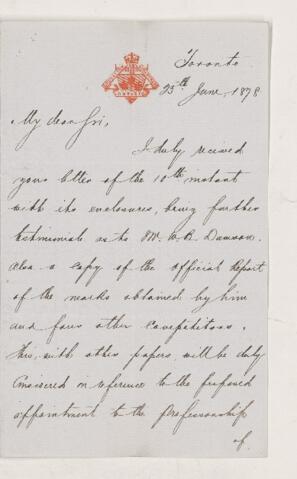 Toronto
25th June, 1878
My dear Sir,
I duly received
your letter of the 10th instant
with its enclosures, being further
testimonials as to Mr. W. B. Dawson.
Also a copy of the Official Report
of the marks obtained by him
and four other competitors.
This, with other papers, will be duly
Considered in reference to the proposed
appointment to the Professorship
of